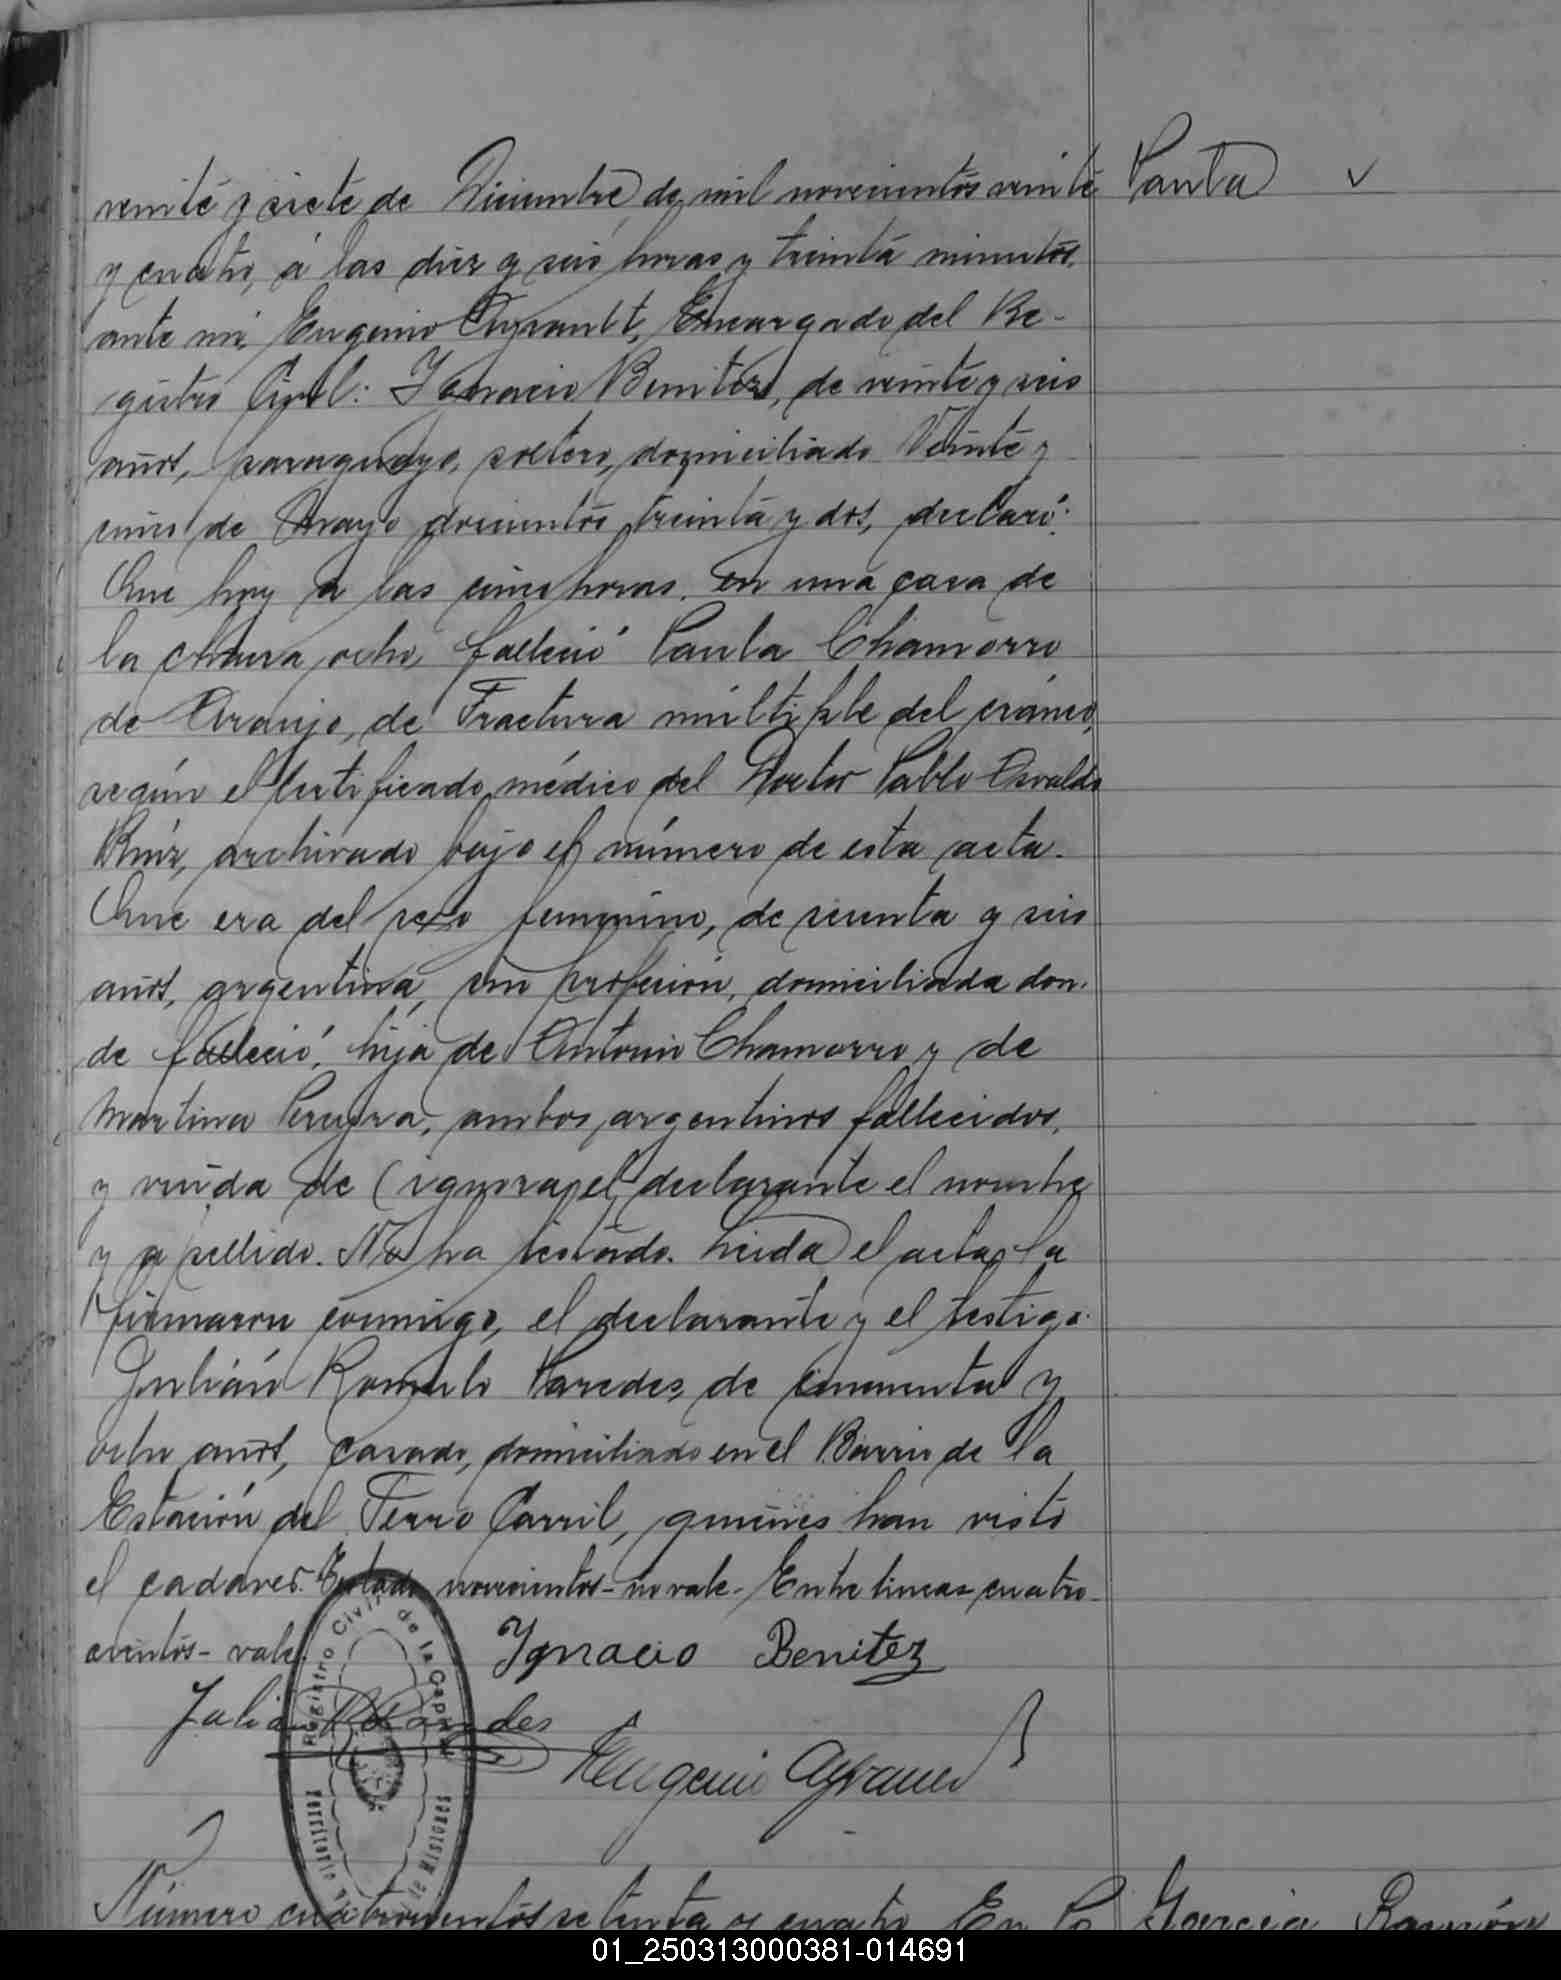 veinte y siete de Diciembre de mil novecientos veinte Paula
y cuatro, á las diez y seis horas y treinta minutos,
ante mi, Eugenio Ayrault, Encargado del Re-
gistro Civil: Ignacio Benitez, de veinte y seis
años, paraguayo, soltero, domiciliado Veinte y
cinco de Mayo doscientos treinta y dos, declaró:
Que hoy á las cinco horas, en una casa de
la chacra ocho, falleció Paula Chamorro
de Araujo, de Fractura múltiple del cráneo,
según el certificado médico del Doctor Pablo Osvaldo
Ruíz, archivado bajo el número de esta acta.
Que era del sexo femenino, de sesenta y seis
años, argentina, sin profesión, domiciliada don-
de falleció, hija de Antonio Chamorro y de
Martina Pereyra, ambos argentinos fallecidos,
y viuda de (ignora el declarante el nombre
y apellido. No ha testado. Leida el acta, la
firmaron conmigo, el declarante y el testigo
Julián Romulo Paredes, de cincuenta y
ocho años, casado, domiciliado en el Barrio de la
Estación del Ferro Carril, quienes han visto
el cadáver. Testado novecientos - no vale - Entre lineas cuatro-
cientos - vale.
Ignacio Benitez
Julián R Paredes
Eugenio Ayrault
Registro Civil de la Capital
Territorio de Misiones
Número cuatrocientos setenta y cuatro En la García Ramón
01_250313000381-014691